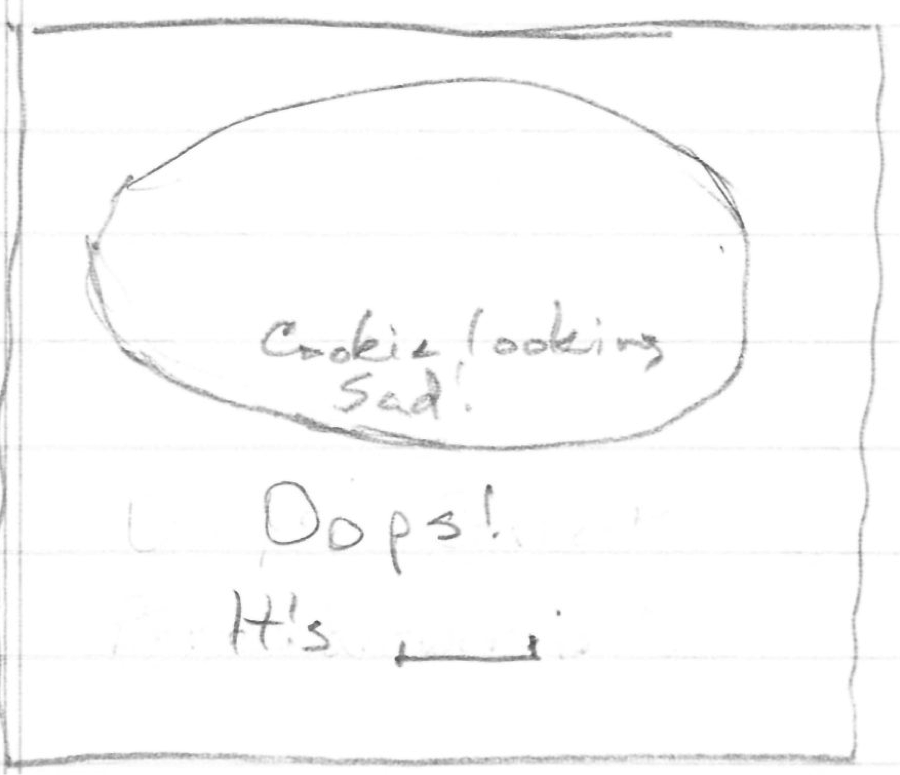 Cookie looking
Sad!
Oops!
It's